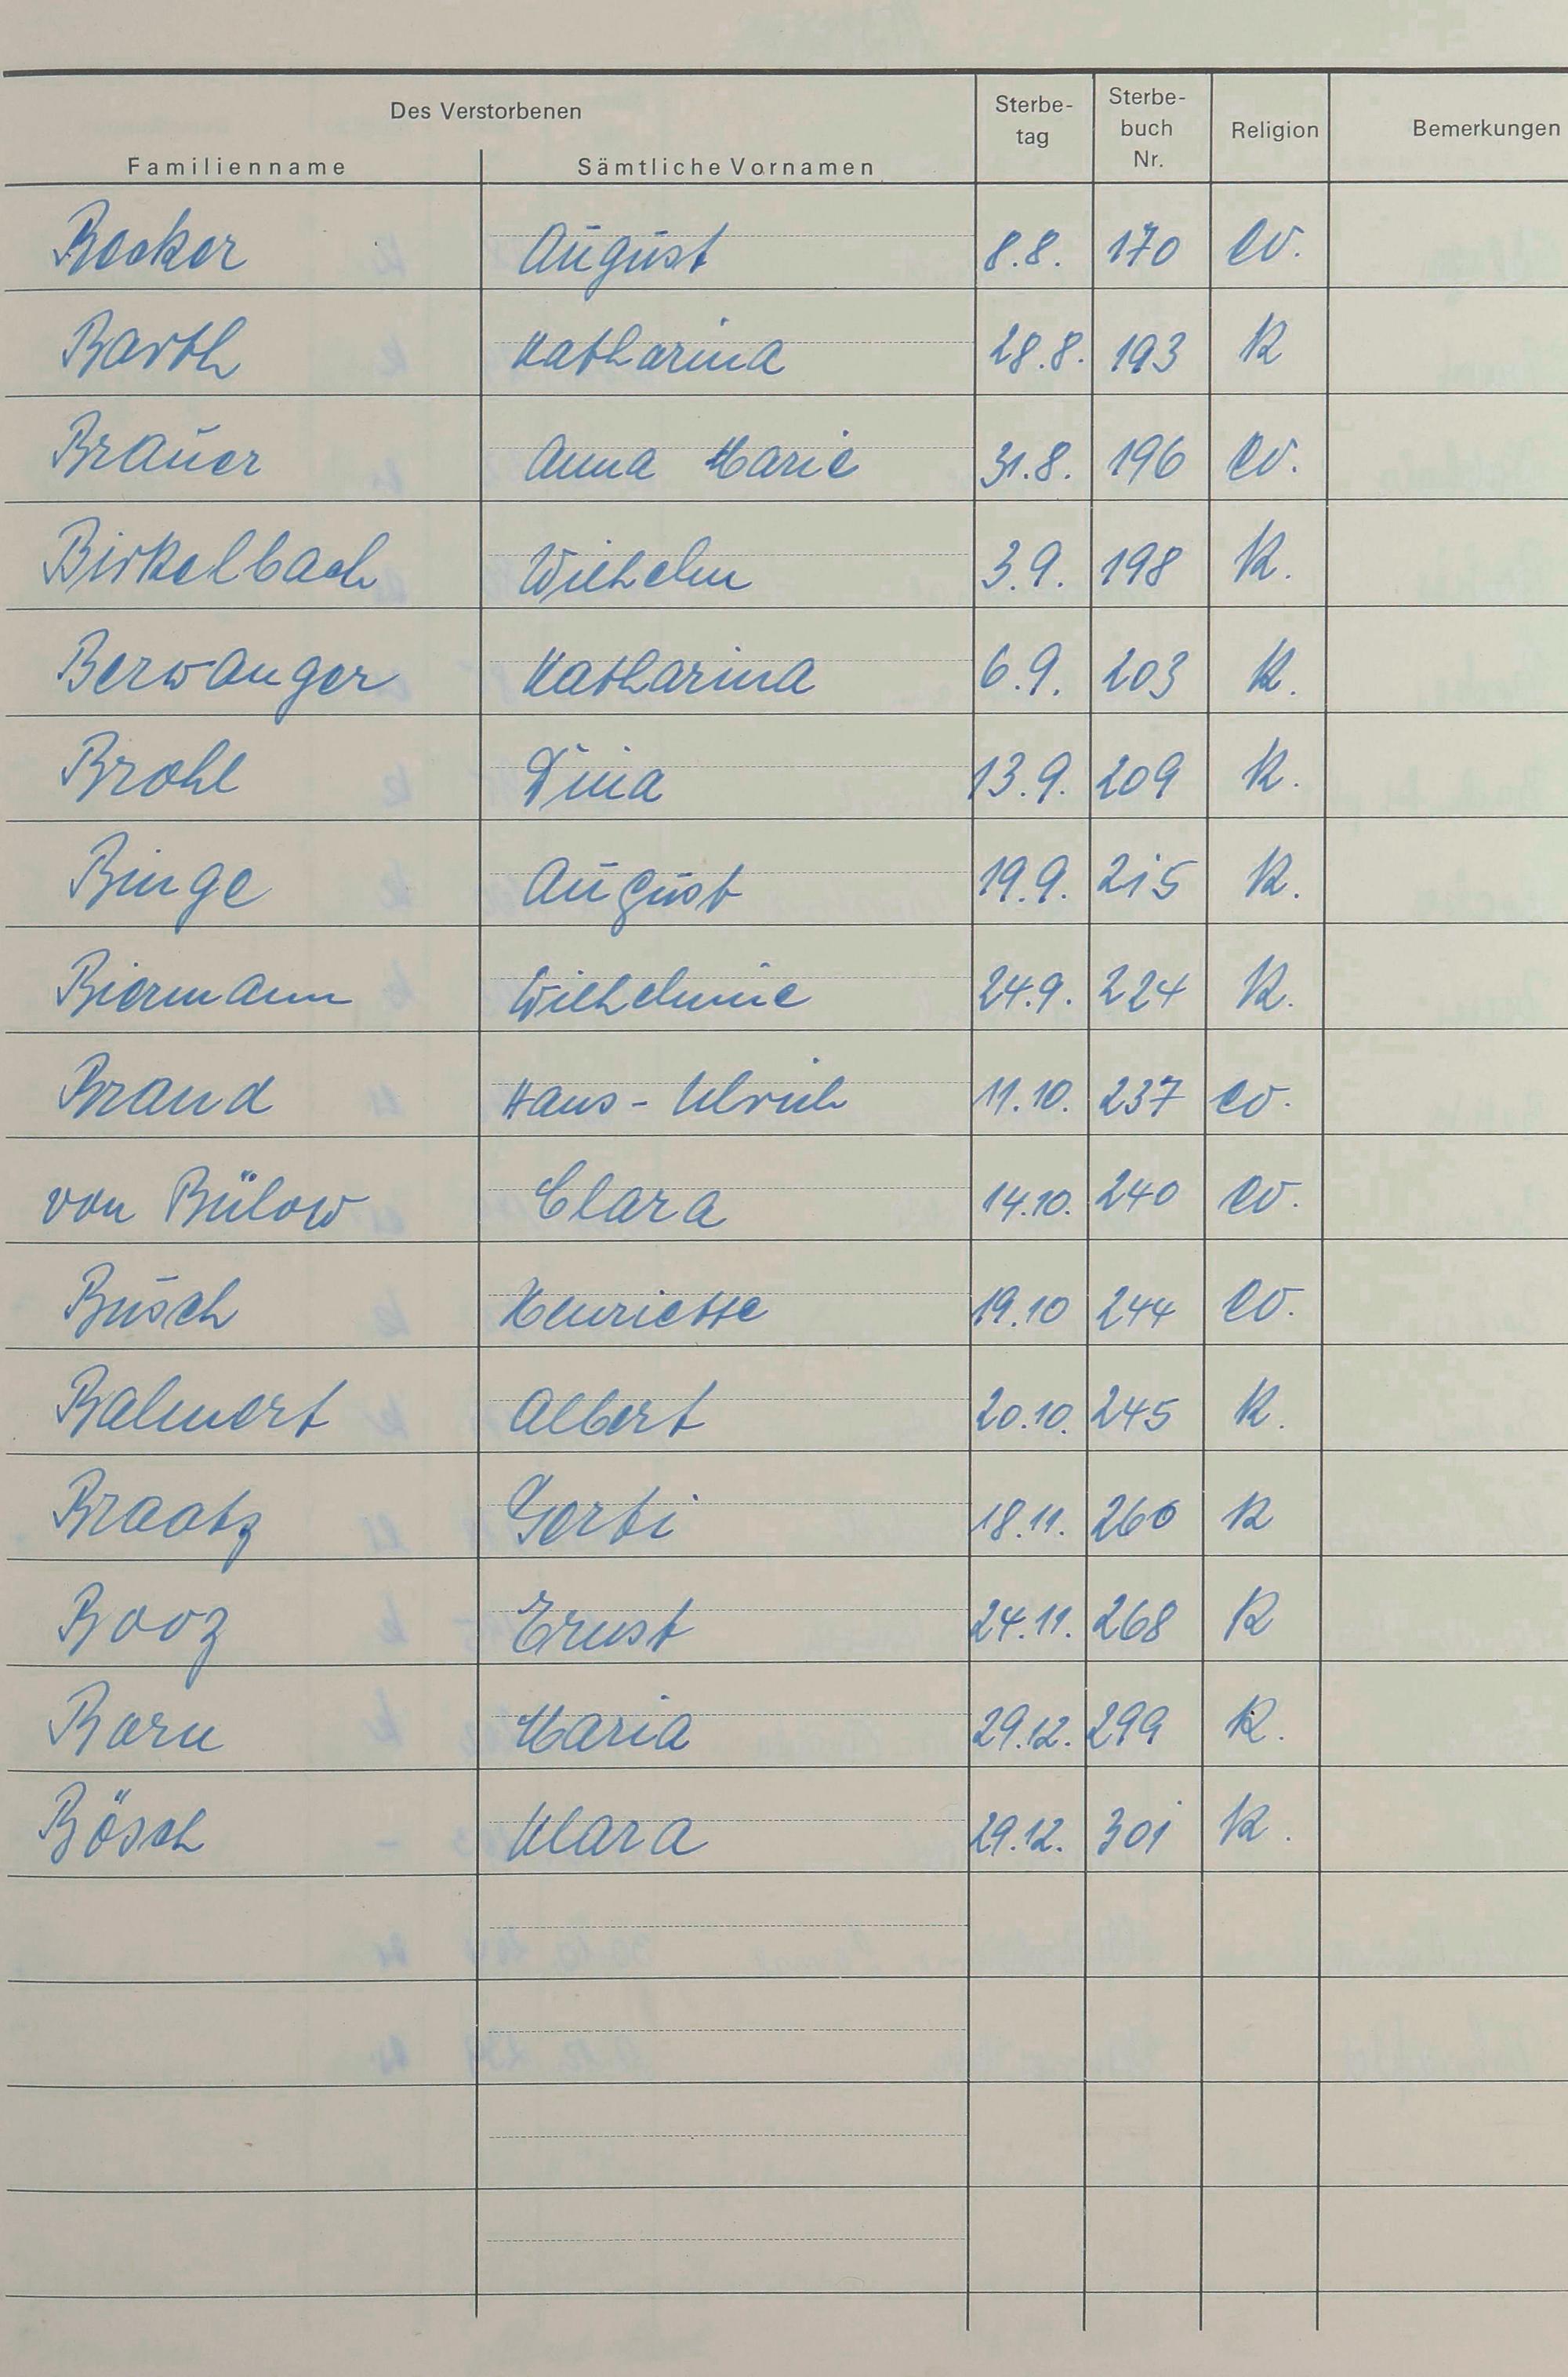 Des Verstorbenen
Familienname Sämtliche Vornamen Sterbe-tag Sterbe-buch Nr. Religion Bemerkungen
Becker August 8.8. 170 ev.
Barth Katharina 28.8. 193 k
Brauer Anna Marie 31.8. 196 ev.
Birkelbach Wilhelm 3.9. 198 k.
Berwanger Katharina 6.9. 203 k.
Brohl Dina 13.9. 209 k.
Binge August 19.9. 215 k.
Biermann Wilhelmine 24.9. 224 k.
Brand Hans-Ulrich 11.10. 237 ev.
von Bülow Clara 14.10. 240 ev.
Busch Henriette 19.10 244 ev.
Balmert Albert 20.10. 245 k.
Braatz Gerti 18.11. 260 k
Booz Ernst 24.11. 268 k
Born Maria 29.12. 299 k.
Bösch Klara 29.12. 301 k.